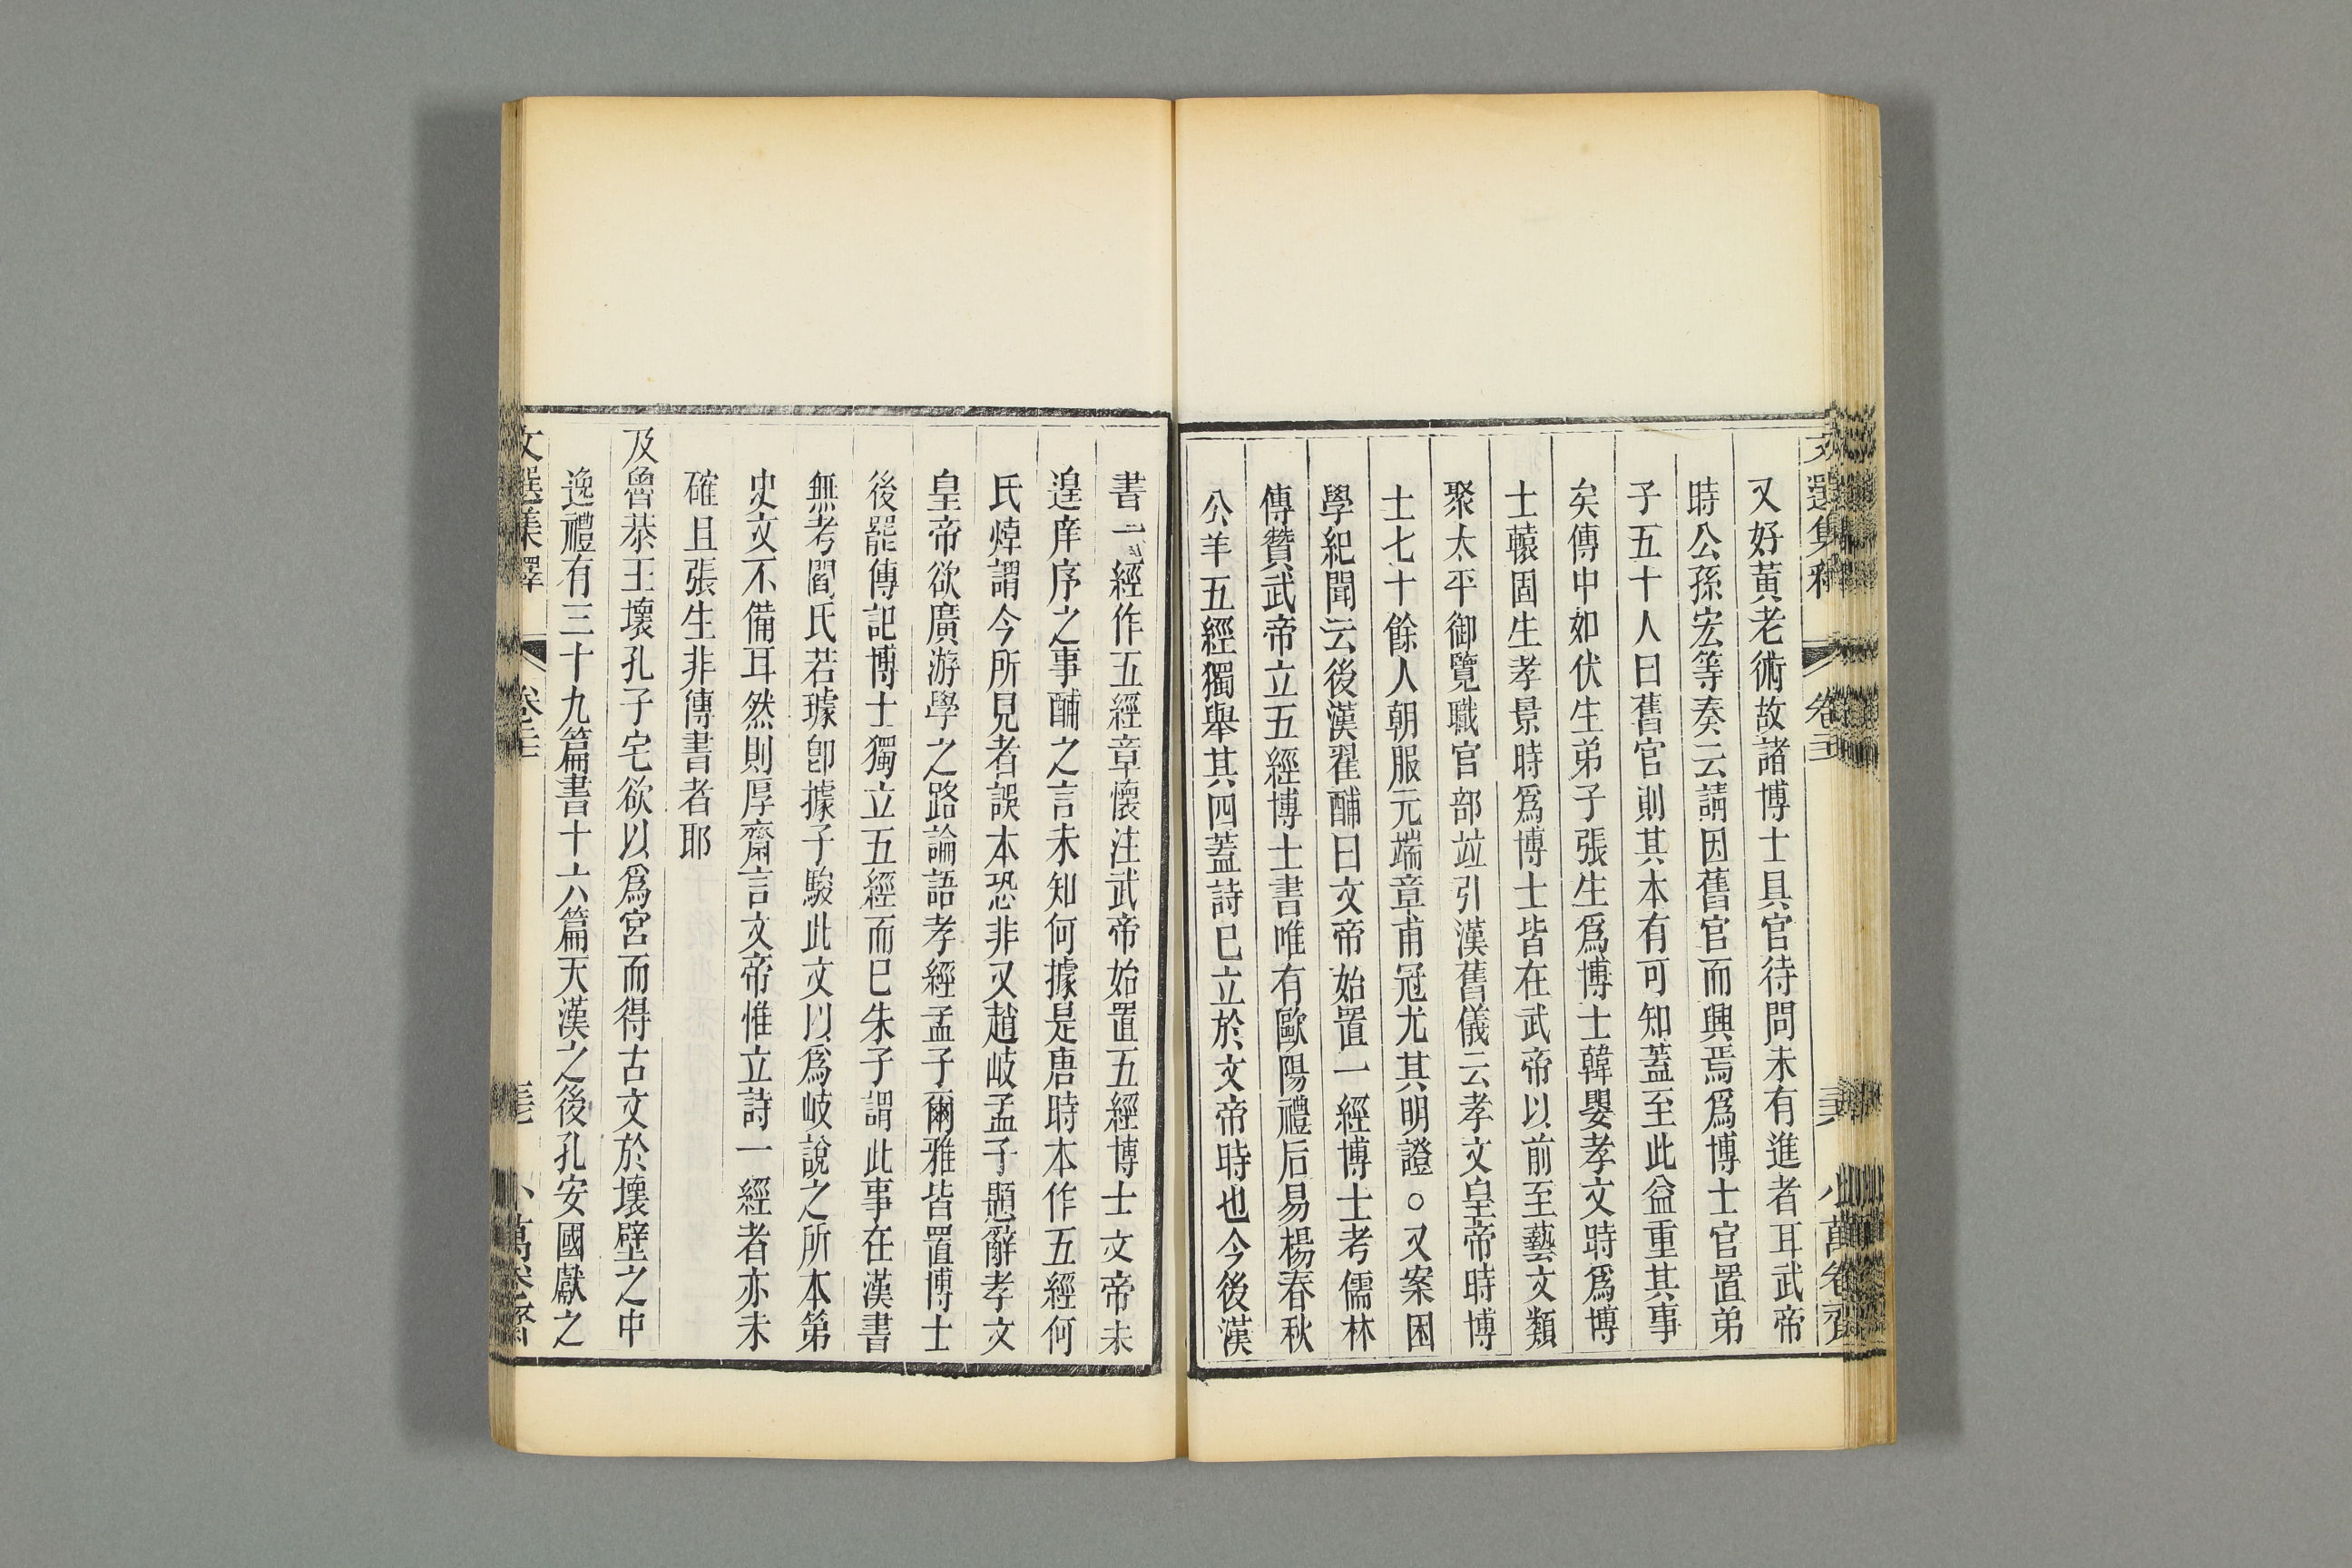 又好黃老術故諸博士具官待問未有進者耳武帝
時公孫宏等奏云請因舊官而興焉爲博士官置弟
子五十人曰舊官則其本有可知蓋至此益重其事
矣傳中如伏生弟子張生爲博士韓嬰孝文時爲博
士轅固生孝景時爲博士皆在武帝以前至藝文類
聚太平御覽職官部竝引漢舊儀云孝文皇帝時博
士七十餘人朝服元端章甫冠尤其明證○又案困
學紀聞云後漢翟酺曰文帝始置一經博士考儒林
傳贊武帝立五經博士書唯有歐陽禮后易楊春秋
公羊五經獨舉其四蓋詩已立於文帝時也今後漢
書一經作五經章懷注武帝始置五經博士文帝未
遑庠序之事酺之言未知何據是唐時本作五經何
氏焯謂今所見者誤本恐非又趙岐孟子題辭孝文
皇帝欲廣游學之路論語孝經孟子爾雅皆置博士
後罷傳記博士獨立五經而已朱子謂此事在漢書
無考閻氏若璩卽據子駿此文以爲岐說之所本第
史文不備耳然則厚齋言文帝惟立詩一經者亦未
確且張生非傳書者耶
及魯恭王壞孔子宅欲以爲宮而得古文於壞壁之中
逸禮有三十九篇書十六篇天漢之後孔安國獻之
文選集釋